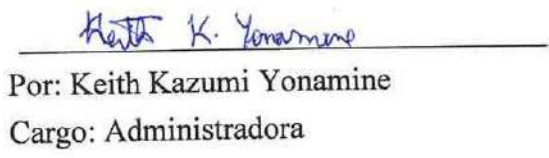 Keith K. Yonamine
Por: Keith Kazumi Yonamine
Cargo: Administradora